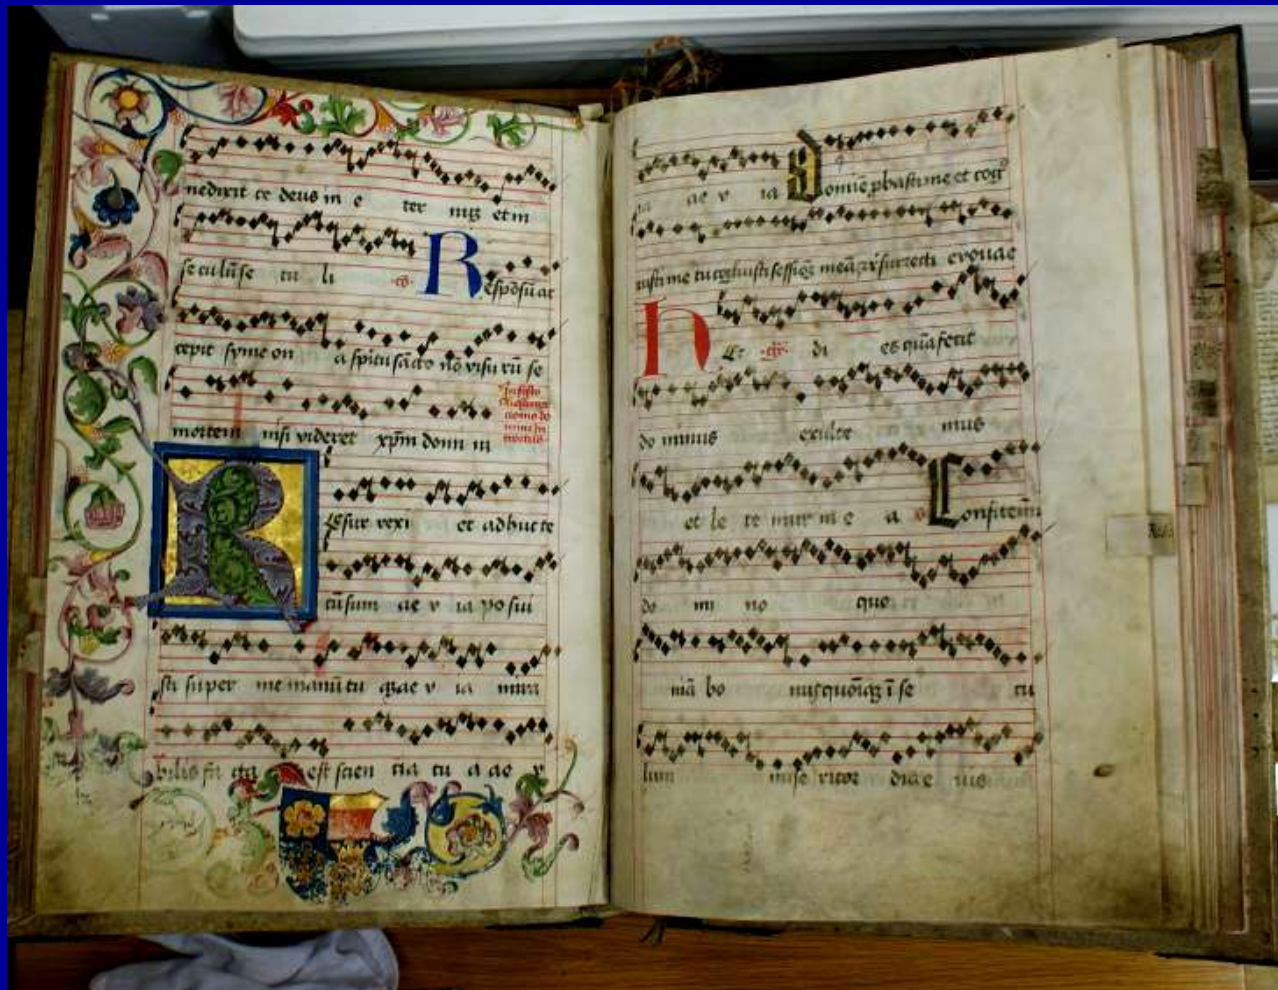 nedixit te deus in e ter nuz et in
se culũ se cu li .co. Respõsũ ac
cepit symeon a spiritu sãcto nõ visurũ se
mortem nisi videret xpm domi ni
In festo
Resurrexi et adhuc te
cũ sum ae v ia posui
sti super me manũ tu az ae v ia mira
bilis fta est scien tia tu a ae v
ia ae v ia Domie pbasti me et cog
uisti me tu cognouisti sessioz meã z resurrecti evouae
Hec .gr. di es quã fecit
dominus exulte mus
et le te mur in e a Confitemĩ
do mi no quo
niã bo nus quoniaz ĩ se cu
lum mise ricor dia e ius